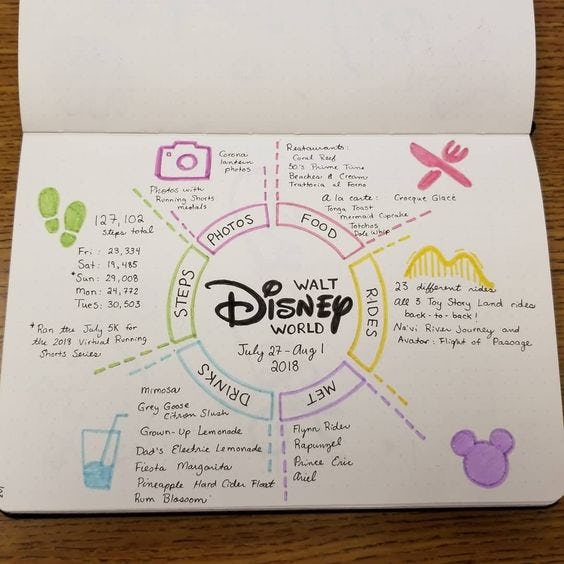 WALT
DISNEY
WORLD
July 27-Aug 1
2018
PHOTOS
Corona
lantern
photos
Photos with
Running Shorts
medals
FOOD
Restaurants:
Coral Reef
50's Prime Time
Beaches & Cream
Trattoria al Forno
A la carte: Croque Glacé
Tonga Toast
Mermaid Cupcake
Totchos
Dole Whip
RIDES
23 different rides
All 3 Toy Story Land rides
back-to-back!
Na'vi River Journey and
Avatar: Flight of Passage
MET
Flynn Rider
Rapunzel
Prince Eric
Ariel
DRINKS
Mimosa
Grey Goose
Citron Slush
Grown-Up Lemonade
Dad's Electric Lemonade
Fiesta Margarita
Pineapple Hard Cider Float
Rum Blossom
STEPS
127,102
steps total
Fri: 23,334
Sat: 19,485
*Sun: 29,008
Mon: 24,772
Tues: 30,503
*Ran the July 5K for
the 2018 Virtual Running
Shorts Series